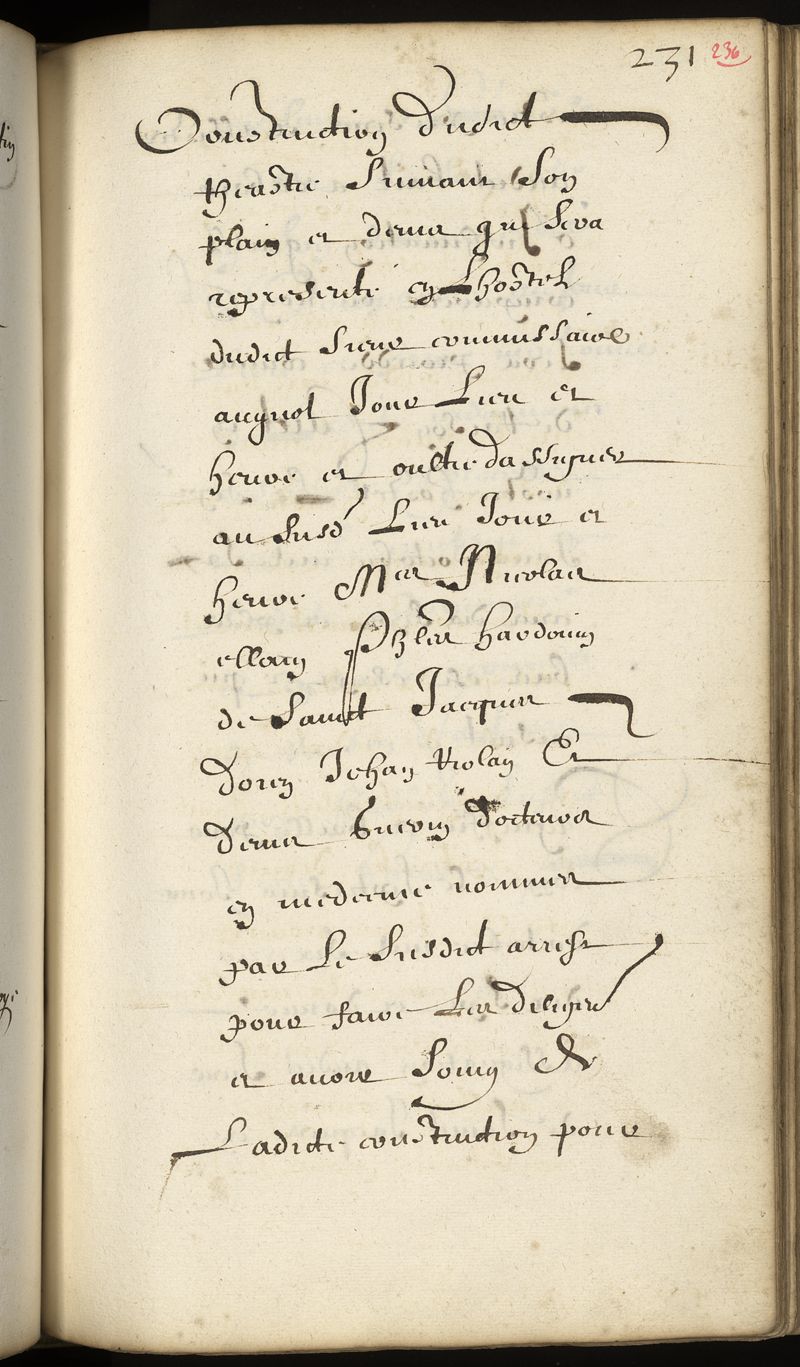 231 236
Construction dudict
theastre suivant son
plain et devis qui sera
representé en Lhostel
dudict sieur commissaire
auquel Jour Lieu et
heure et oultre dassigner
au susd Lieu Jour et
heure Mes Nicolas
ellain Hardouin
de Sainct Jacques
doien Jehan Riolan Et
denis Guerin docteurs
en medecine nommes
par Le susdict arrest
pour faire Les diligen
et avoir soing de
Ladicte construction pour